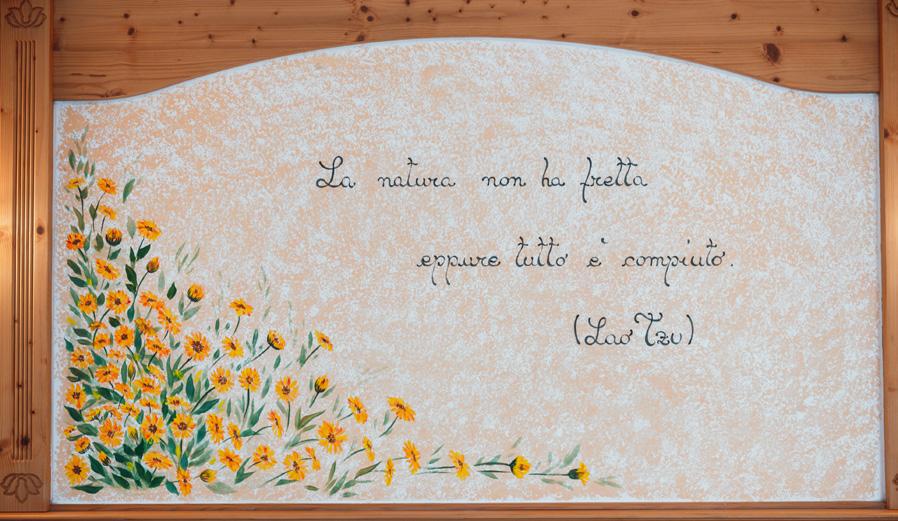 La natura non ha fretta
eppure tutto è compiuto.
(Lao Tzu)